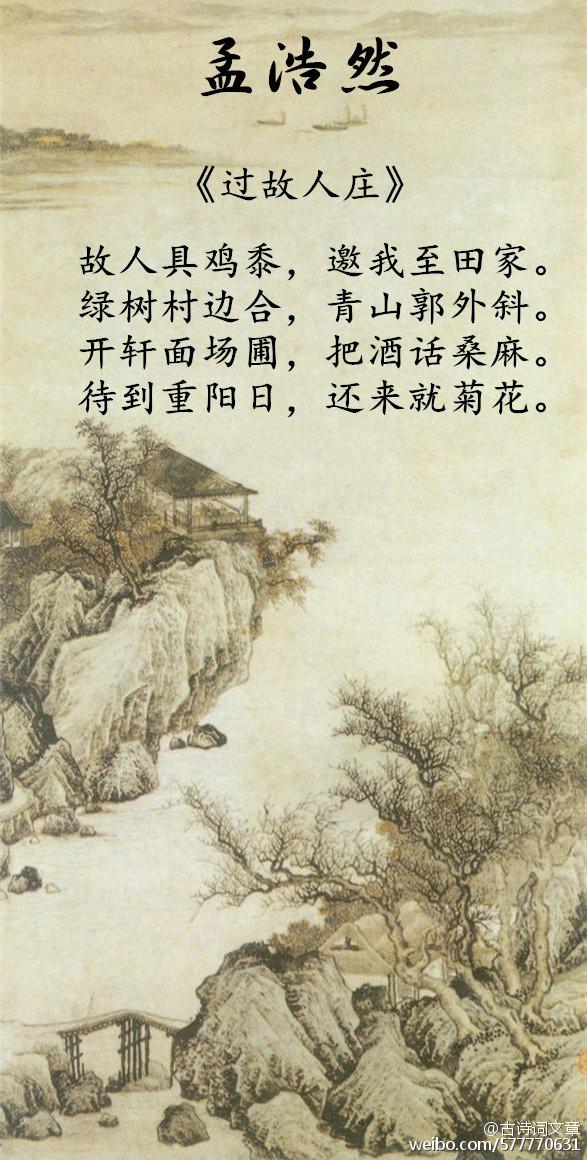 孟浩然
《过故人庄》
故人具鸡黍，邀我至田家。
绿树村边合，青山郭外斜。
开轩面场圃，把酒话桑麻。
待到重阳日，还来就菊花。
@古诗词文章
weibo.com/577770631